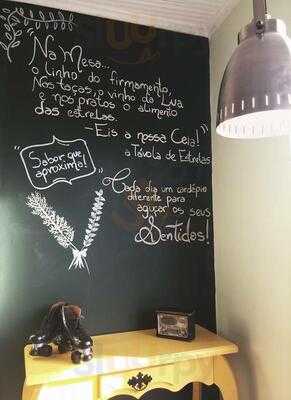 "Na Mesa...
o linho do firmamento,
Nas taças, o vinho da Lua
e nos pratos o alimento
das estrelas.
-Eis a nossa Ceia!"
a Távola de Estrelas
Sabor que
aproxima!
Cada dia um cardápio
diferente para
aguçar os seus
Sentidos!